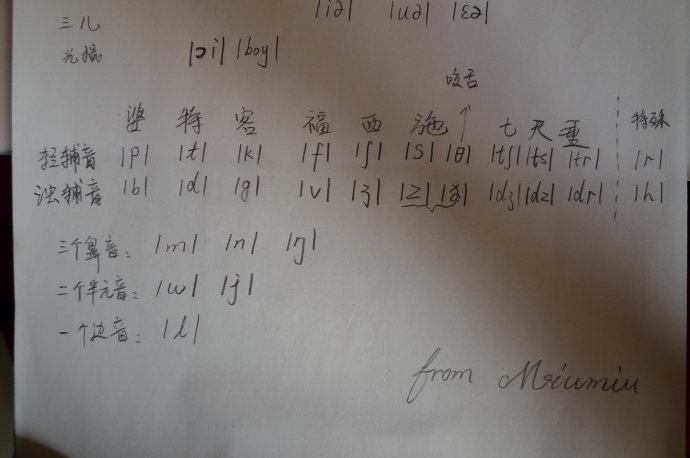 三儿 |iə| |uə| |εə|
|ɔi| |boy|
咬舌
婆 特 客 福 西 施 七 尺 重 特殊
轻辅音 |p| |t| |k| |f| |ʃ| |s| |θ| |tʃ| |ts| |tr| |r|
浊辅音 |b| |d| |g| |v| |ʒ| |z| |ð| |dʒ| |dz| |dr| |h|
三个鼻音: |m| |n| |ŋ|
二个半元音: |w| |j|
一个边音: |l|
from Miumiu